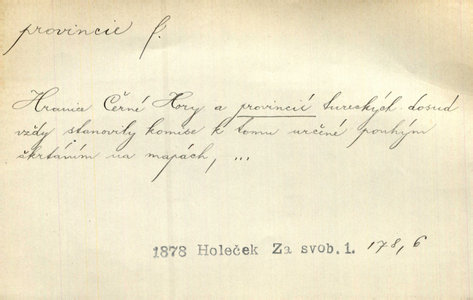 provincie f.
Hranice Černé Hory a provincií tureckých dosud
vždy stanovily komise k tomu určené pouhým
škrtáním na mapách, ...
1878 Holeček Za svob. 1. 178, 6